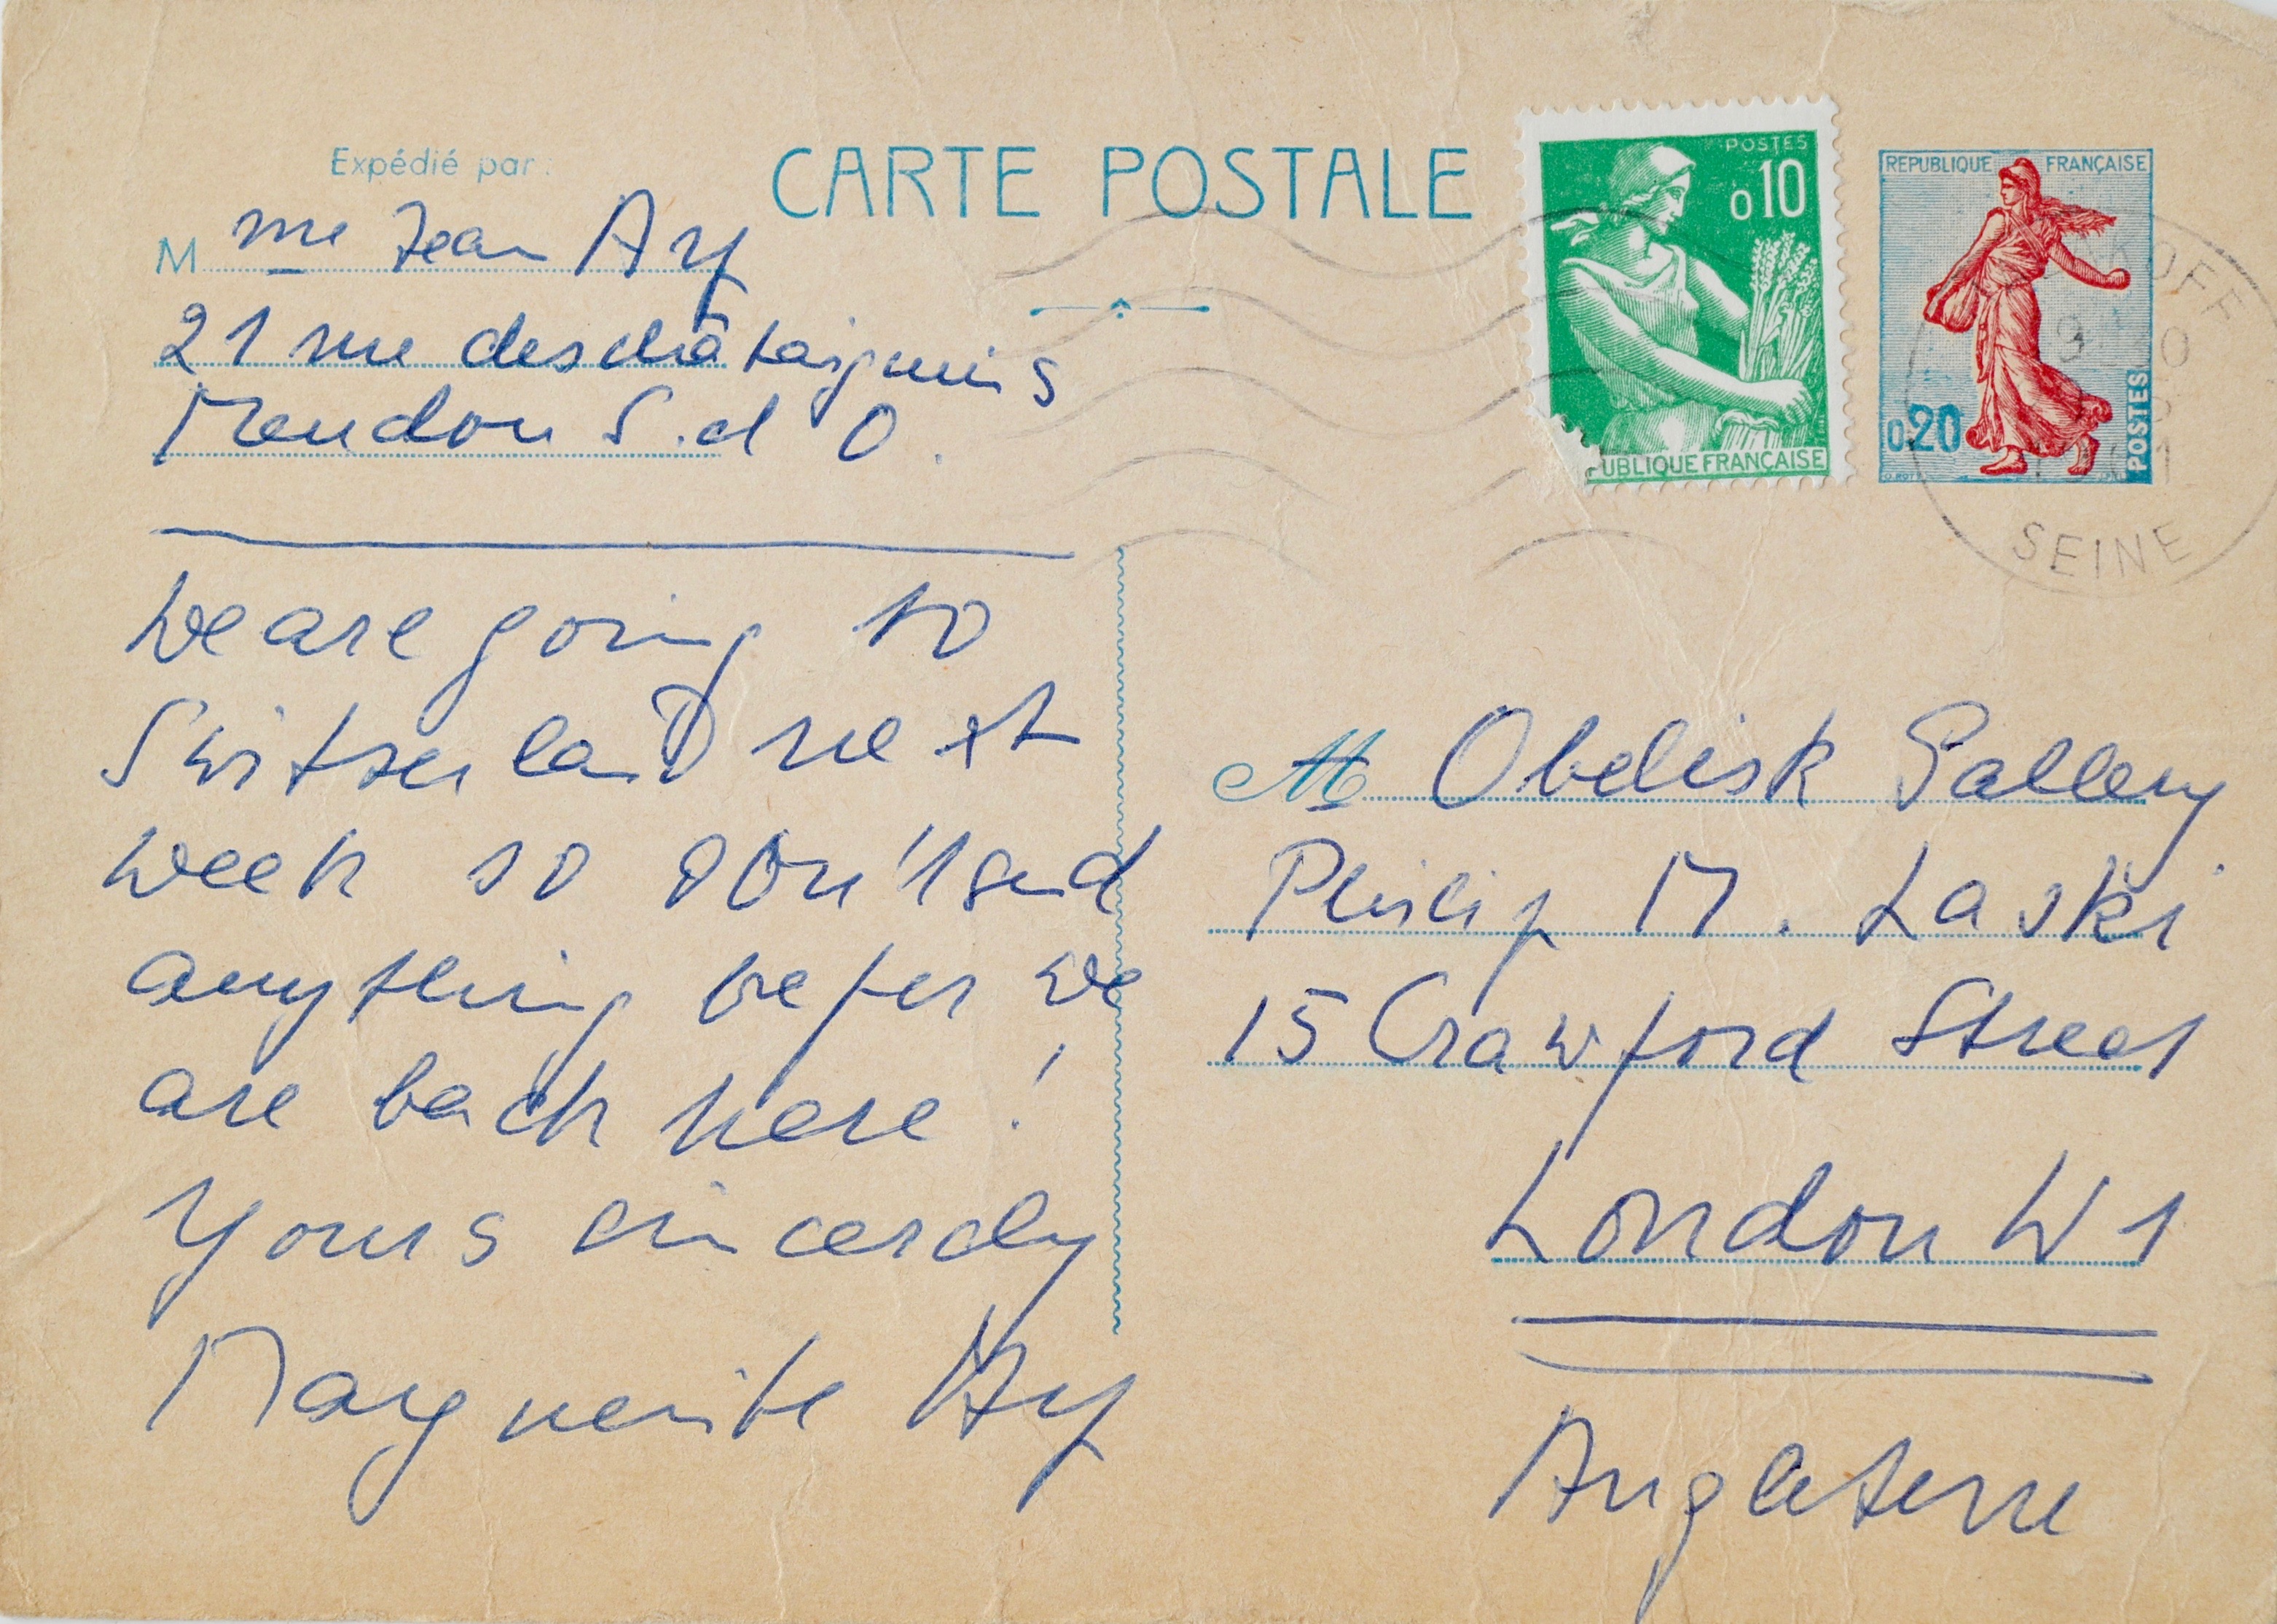 Expédié par:
CARTE POSTALE
M me Jean Arp
21 rue des châtaigniers
Meudon S. d O.
POSTES
0,10
RÉPUBLIQUE FRANÇAISE
REPUBLIQUE FRANÇAISE
0,20
POSTES
SEINE
We are going to
Switserland next
week so don't send
anything befer we
are back here!
Yours sincerely
Marguerite Arp
M Obelisk Gallery
Philip M. Laski
15 Crawford Street
London W1
Angleterre